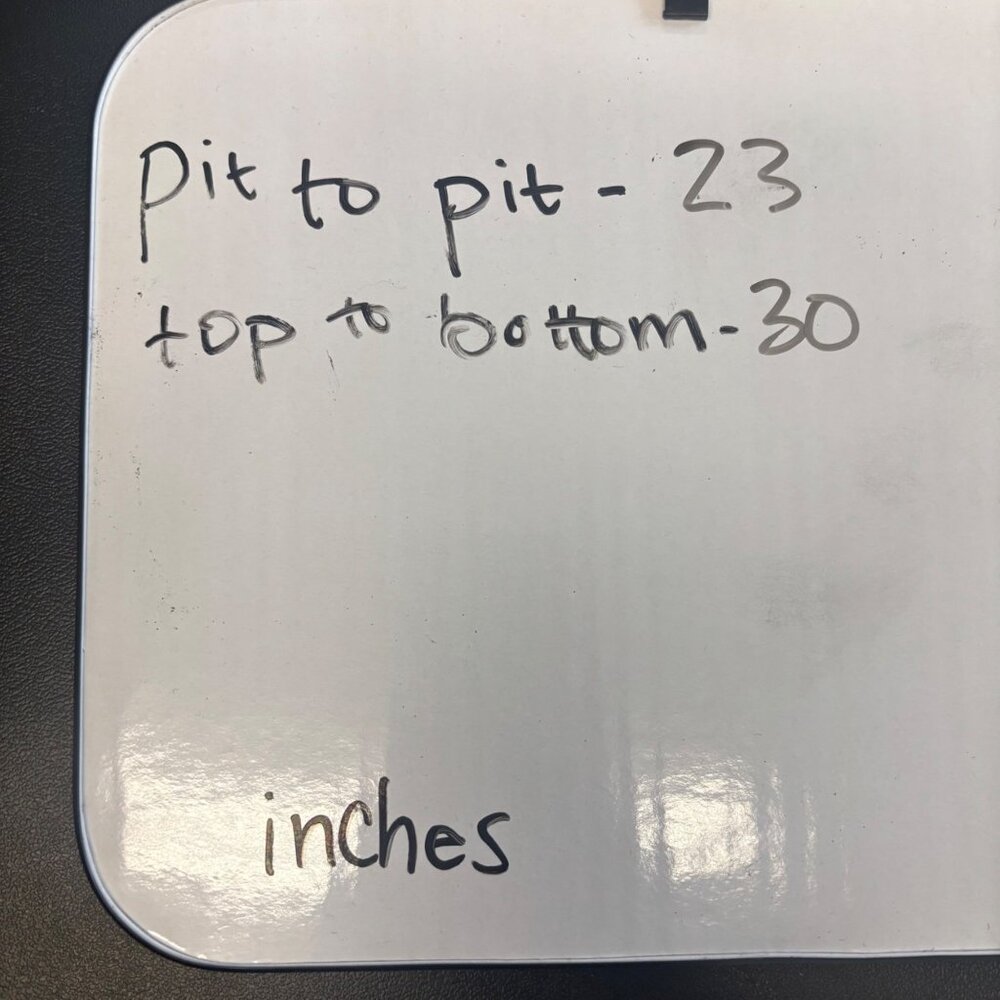 Pit to pit - 23
top to bottom - 30
inches